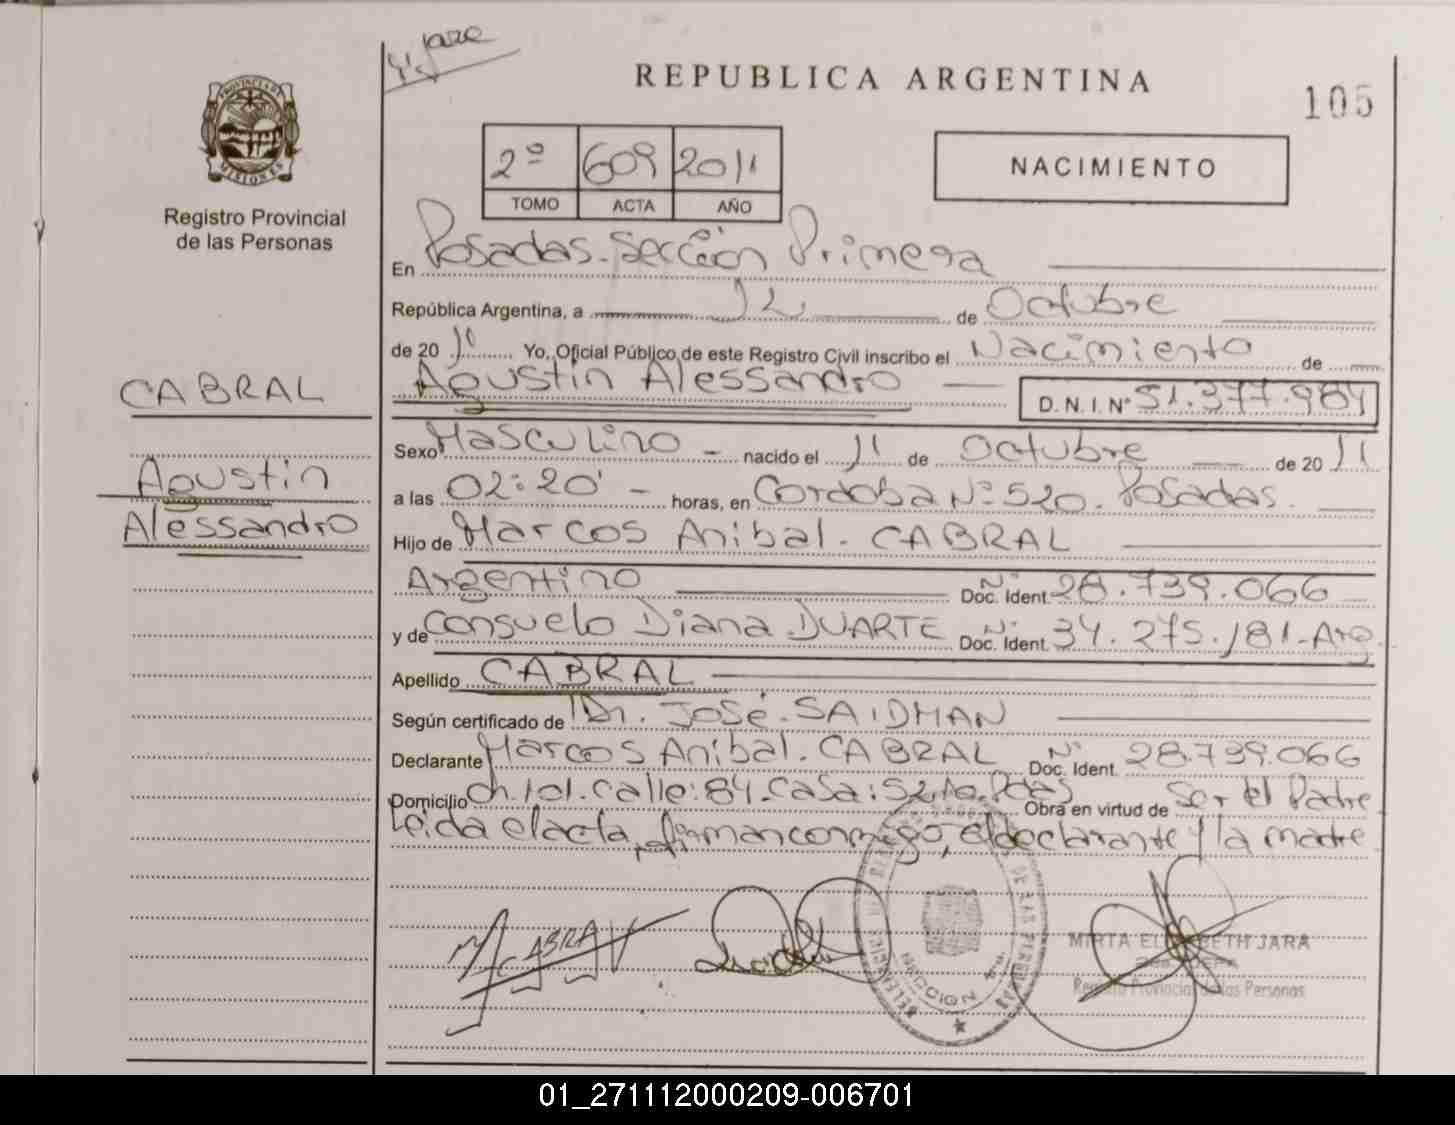 Jara
REPUBLICA ARGENTINA
105
PROVINCIA DE MISIONES
Registro Provincial
de las Personas
2º 609 2011
TOMO ACTA AÑO
NACIMIENTO
En Posadas - Sección Primera
República Argentina, a 12 de Octubre
de 2011 Yo, Oficial Público de este Registro Civil inscribo el Nacimiento de
Agustin Alessandro D. N. I. Nº 51.377.984
CABRAL
Agustin
Alessandro
Sexo Masculino - nacido el 11 de Octubre de 2011
a las 02:20' - horas, en Cordoba Nº 520. Posadas.
Hijo de Marcos Anibal. CABRAL
Argentino Doc. Ident. Nº 28.739.066
y de Consuelo Diana DUARTE Doc. Ident. Nº 34.275.181-Arg.
Apellido CABRAL
Según certificado de Dr. José. SAIDMAN
Declarante Marcos Anibal. CABRAL Doc. Ident. Nº 28.739.066
Domicilio Ch. 101. Calle: 84. Casa: 52. Pdas Obra en virtud de Ser el Padre
Leida el acta, firman conmigo, el declarante y la madre
M. CABRAL
SECCION 1ra.
MIRTA ELIZABETH JARA
Registro Provincial de las Personas
01_271112000209-006701